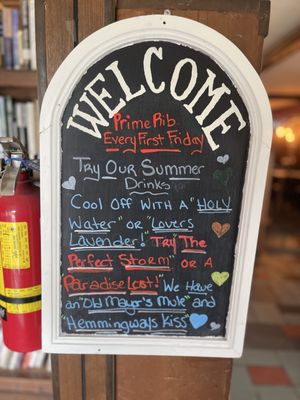 WELCOME
Prime Rib
Every First Friday
Try Our Summer
Drinks
Cool Off With A "Holy
Water" or "Lovers
Lavender! "Try "The
Perfect Storm" or A
Paradise Lost! We Have
an "Old Mayor's Mule" and
"Hemmingways Kiss"